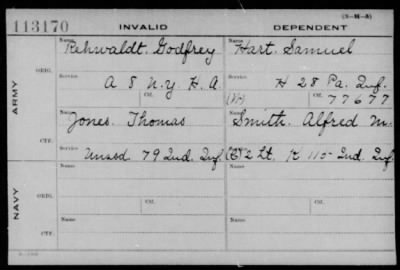 (3-M-A)
113170 INVALID DEPENDENT
Name Rehwaldt. Godfrey Name Hart. Samuel
ARMY ORIG.
Service A 8 N.Y. H.A. Service H 28 Pa. Inf.
Ctf. (Wr) Ctf. 77677
Name Jones. Thomas Name Smith. Alfred M.
CTF.
Service Unasd. 79 Ind. Inf. Service (C) 2 Lt. K 115 Ind. Inf.
NAVY ORIG.
Name Name
Ctf. Ctf.
CTF.
Name Name